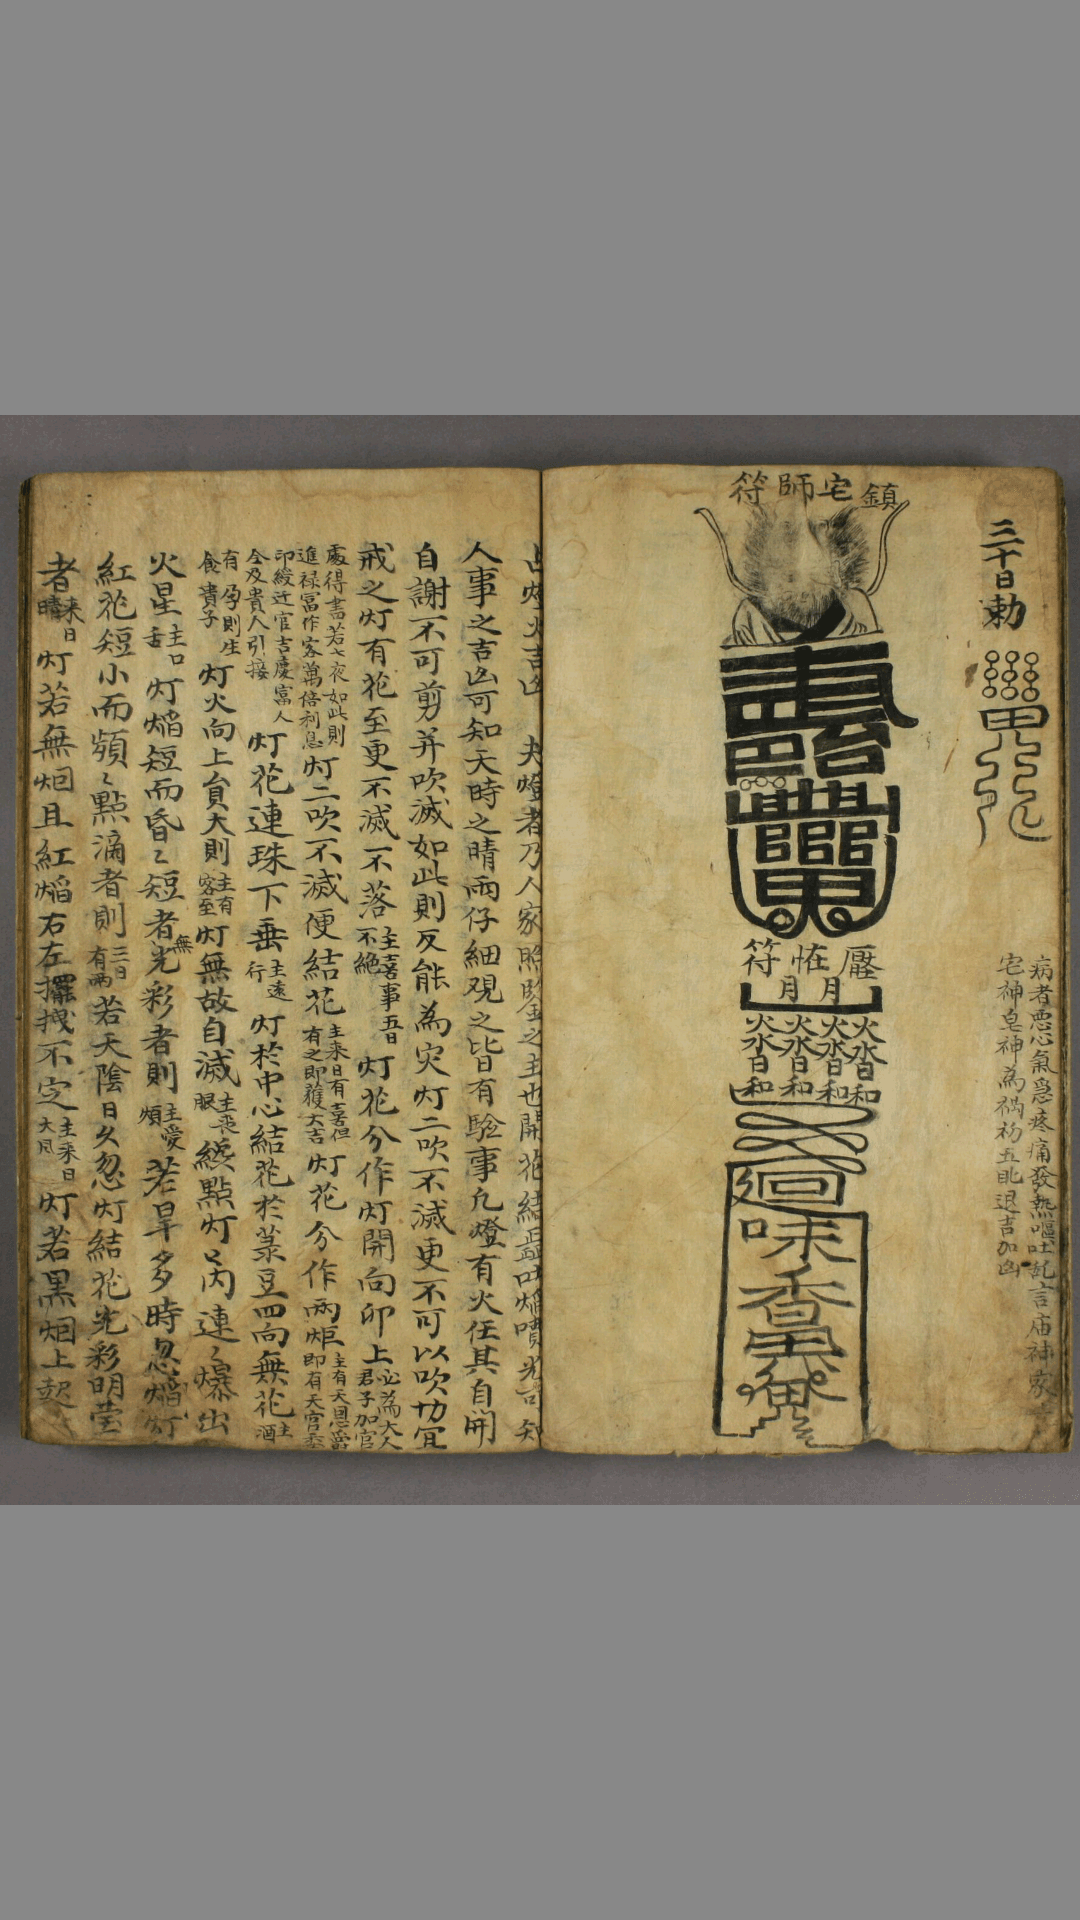 三十日勅
病者悪心氣急疼痛發熱嘔吐乱言庙神家
宅神皂神為禍初五眂退吉加凶
鎮宅師符
壓恠符
月月
火水日和 火水日和 火水日和 火水日和
廻
味
香
占燈火吉凶 夫燈者乃人家照鑒之主也開花結蕋吐焰噴光可知
人事之吉凶可知天時之晴雨仔細观之皆有驗事凢燈有火任其自開
自謝不可剪并吹滅如此則反能為灾灯二吹不滅更不可以吹切宜
戒之灯有花至更不滅不落主喜事五日不絶灯花分作灯開向卯上必為大人君子加官
處得書若七夜如此則進禄冨作客萬倍利息灯二吹不滅便結花主来日有喜但有之即獲大吉灯花分作兩炬主有天恩爵即有天官委
印綬迁官吉慶富人全及貴人引接灯花連珠下垂主遠行灯於中心結花於菉豆四向無花主酒
有孕則生食貴子灯火向上貟大則主有客至灯無故自滅主丧服纔點灯丙連〻爆出
火星主口舌灯焰短而昏〻短者無光彩者則主愛煩若旱多時忽焰灯
紅花短小而頻〻點滴者則三日有雨若天陰日久忽灯結花光彩明莹
者来日晴灯若無烟且紅焰右左擺拽不定主来日大风灯若黒烟上起